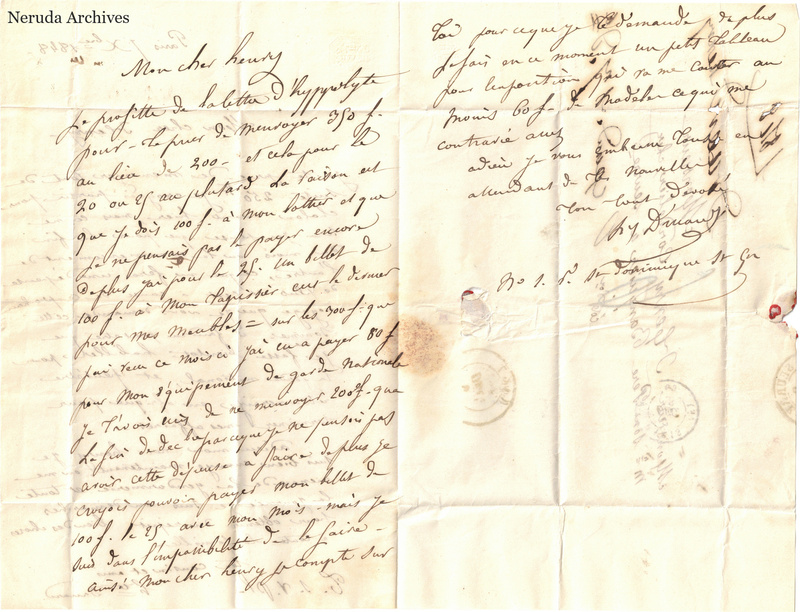 Neruda Archives
Mon cher henry
Je profitte de la lettre d'hyppolyte
pour te prier de m'envoyer 350 f.
au lieu de 200 - et cela pour le
20 ou 25 au plutard La raison est
que je dois 100 f. à mon et que
Je ne pensais pas le payer encore
De plus j'ai pour le 25. un billet de
100 f. à mon tapissier c'est le dernier
pour mes meubles = sur les 300 f. que
j'ai recu ce mois ci j'ai eu a payer 80 f
pour mon équipement de garde nationale
Je t'avois ecris de ne m'envoyer 200 f. qua
la fin de dec parceque je ne pensois pas
avoir cette dépense a faire de plus je
croyois pouvoir payer mon billet de
100 f. le 25 avec mon mois - mais je
suis dans l'impossibilité de le faire -
ainsi mon cher henry je compte sur
Toi pour ceque je te demande, de plus
Je fais en ce moment un petit tableau
pour l'exposition qui va me couter au
moins 60 f. de modeles ce qui me
contrarié aussi
adieu je vous embrasse tous en
attendant de tes nouvelles
ton tout dévoué
No 1. r. st dominique st Gn